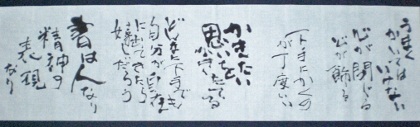 うまく
かいてはいけない
心が閉じる
心が飾る
下手にかくの
が丁度いい
かきたい
思いを
かきたてる
どんなに下手でも
自分が自在
に出てきたら
嬉しいだろう
書はんなり
精神の
表現
なり